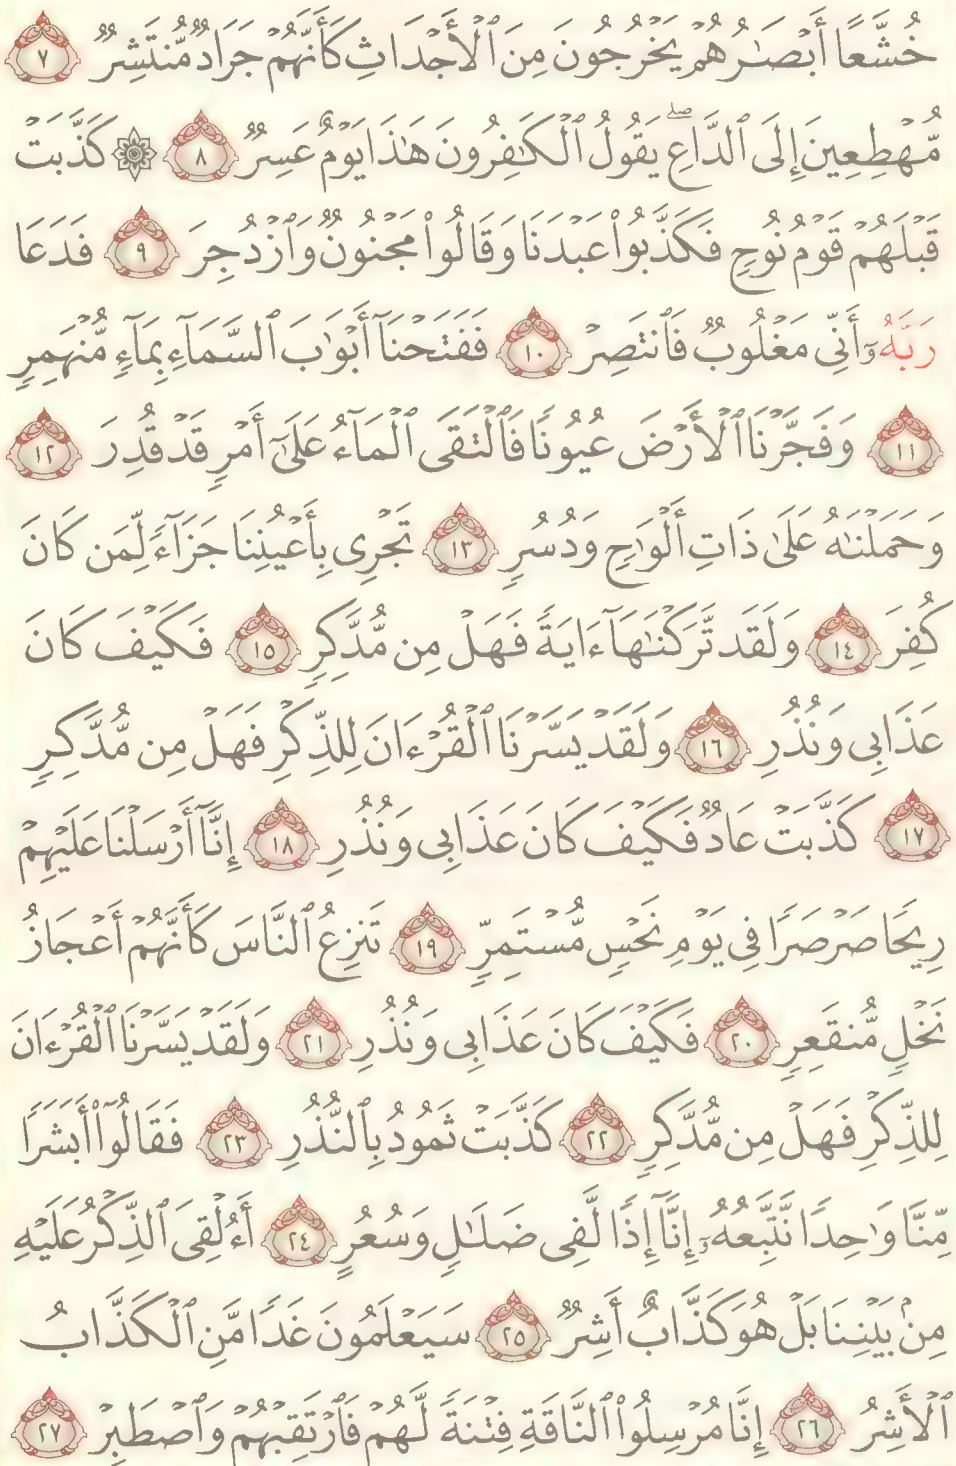 خُشَّعًا أَبْصَـٰرُهُمْ يَخْرُجُونَ مِنَ ٱلْأَجْدَاثِ كَأَنَّهُمْ جَرَادٌ مُّنتَشِرٌ ٧
مُّهْطِعِينَ إِلَى ٱلدَّاعِ ۖ يَقُولُ ٱلْكَـٰفِرُونَ هَـٰذَا يَوْمٌ عَسِرٌ ٨ ۞ كَذَّبَتْ
قَبْلَهُمْ قَوْمُ نُوحٍ فَكَذَّبُوا۟ عَبْدَنَا وَقَالُوا۟ مَجْنُونٌ وَٱزْدُجِرَ ٩ فَدَعَا
رَبَّهُۥٓ أَنِّى مَغْلُوبٌ فَٱنتَصِرْ ١٠ فَفَتَحْنَآ أَبْوَٰبَ ٱلسَّمَآءِ بِمَآءٍ مُّنْهَمِرٍ
١١ وَفَجَّرْنَا ٱلْأَرْضَ عُيُونًا فَٱلْتَقَى ٱلْمَآءُ عَلَىٰٓ أَمْرٍ قَدْ قُدِرَ ١٢
وَحَمَلْنَـٰهُ عَلَىٰ ذَاتِ أَلْوَٰحٍ وَدُسُرٍ ١٣ تَجْرِى بِأَعْيُنِنَا جَزَآءً لِّمَن كَانَ
كُفِرَ ١٤ وَلَقَد تَّرَكْنَـٰهَآ ءَايَةً فَهَلْ مِن مُّدَّكِرٍ ١٥ فَكَيْفَ كَانَ
عَذَابِى وَنُذُرِ ١٦ وَلَقَدْ يَسَّرْنَا ٱلْقُرْءَانَ لِلذِّكْرِ فَهَلْ مِن مُّدَّكِرٍ
١٧ كَذَّبَتْ عَادٌ فَكَيْفَ كَانَ عَذَابِى وَنُذُرِ ١٨ إِنَّآ أَرْسَلْنَا عَلَيْهِمْ
رِيحًا صَرْصَرًا فِى يَوْمِ نَحْسٍ مُّسْتَمِرٍّ ١٩ تَنزِعُ ٱلنَّاسَ كَأَنَّهُمْ أَعْجَازُ
نَخْلٍ مُّنقَعِرٍ ٢٠ فَكَيْفَ كَانَ عَذَابِى وَنُذُرِ ٢١ وَلَقَدْ يَسَّرْنَا ٱلْقُرْءَانَ
لِلذِّكْرِ فَهَلْ مِن مُّدَّكِرٍ ٢٢ كَذَّبَتْ ثَمُودُ بِٱلنُّذُرِ ٢٣ فَقَالُوٓا۟ أَبَشَرًا
مِّنَّا وَٰحِدًا نَّتَّبِعُهُۥٓ إِنَّآ إِذًا لَّفِى ضَلَـٰلٍ وَسُعُرٍ ٢٤ أَءُلْقِىَ ٱلذِّكْرُ عَلَيْهِ
مِنۢ بَيْنِنَا بَلْ هُوَ كَذَّابٌ أَشِرٌ ٢٥ سَيَعْلَمُونَ غَدًا مَّنِ ٱلْكَذَّابُ
ٱلْأَشِرُ ٢٦ إِنَّا مُرْسِلُوا۟ ٱلنَّاقَةِ فِتْنَةً لَّهُمْ فَٱرْتَقِبْهُمْ وَٱصْطَبِرْ ٢٧